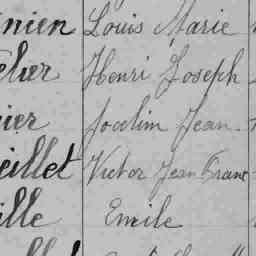 nien Louis Marie
elier Henri Joseph
ier Jocelin Jean
eillet Victor Jean Franc
ille Emile